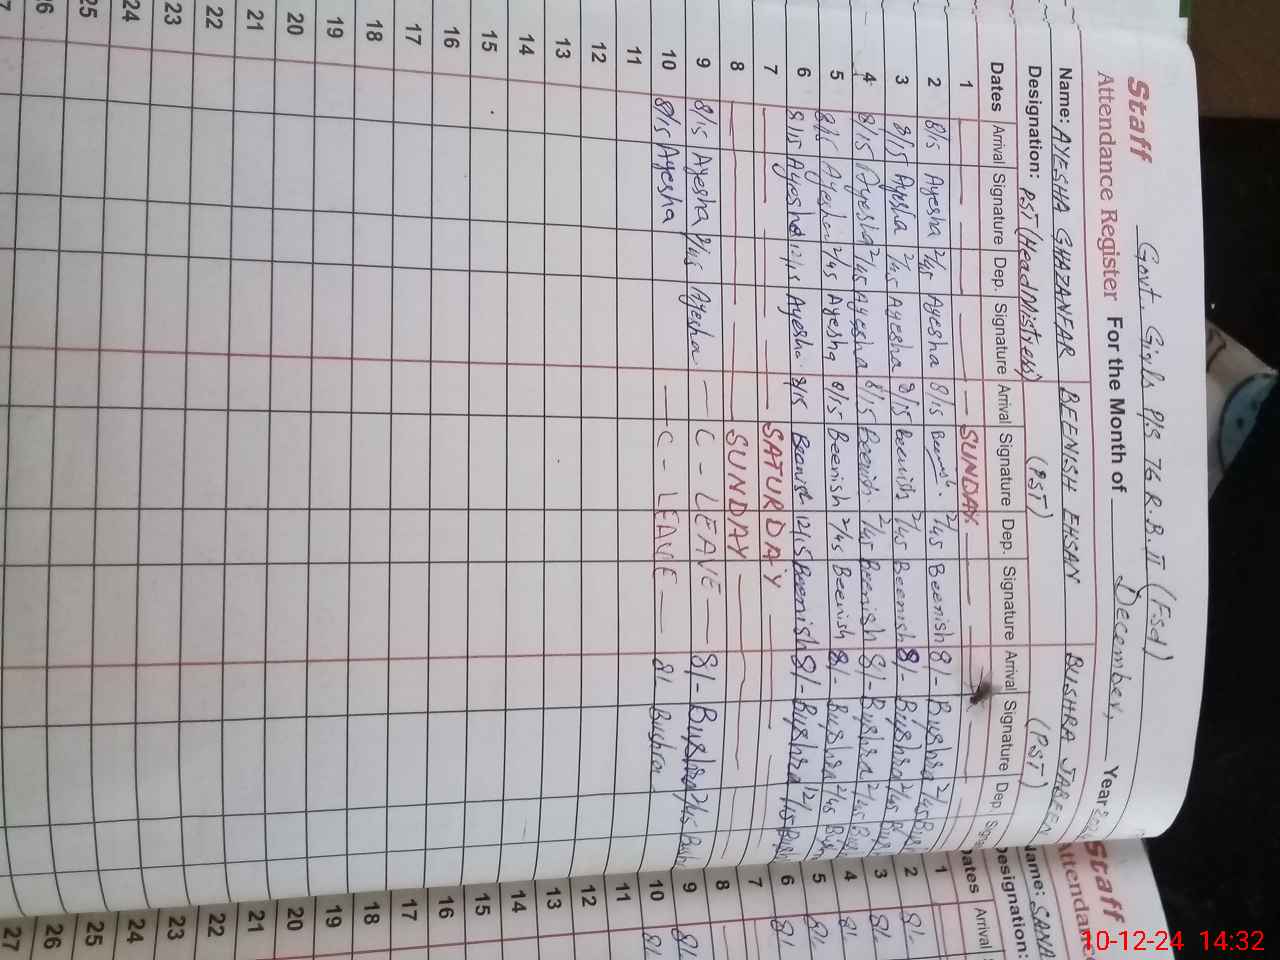 Govt. Girls P/S 76 R.B. II (Fsd)
Staff
Attendance Register For the Month of December, Year
Name: AYESHA GHAZANFAR BEENISH EHSAN BUSHRA JABEEN
Designation: PST (Head Mistress) (PST) (PST)
Dates Arrival Signature Dep. Signature Arrival Signature Dep. Signature Arrival Signature Dep.
1 SUNDAY
2 8/15 Ayesha 2/45 Ayesha 8/15 2/45 Beenish 8/- Bushra 2/45
3 8/15 Ayesha 2/45 Ayesha 8/15 Beenish 2/45 Beenish 8/- Bushra 2/45
4 8/15 Ayesha 2/45 Ayesha 8/15 Beenish 2/45 Beenish 8/- Bushra 2/45
5 8/15 Ayesha 2/45 Ayesha 8/15 Beenish 2/45 Beenish 8/- Bushra 2/45
6 8/15 Ayesha 12/15 Ayesha 8/15 Beenish 12/15 Beenish 8/- Bushra 12/15
7 SATURDAY
8 SUNDAY
9 8/15 Ayesha 2/45 Ayesha C - LEAVE 8/- Bushra 2/45
10 8/15 Ayesha C - LEAVE 8/- Bushra
11
12
13
14
15
16
17
18
19
20
21
22
23
24
25
26
Staff
Attendanc
Name: SANA
Designation:
Dates Arrival
1
2 8/-
3 8/-
4 8/-
5 8/-
6 8/-
7
8
9 8/-
10 8/-
11
12
13
14
15
16
17
18
19
20
21
22
23
24
25
26
27
10-12-24 14:32